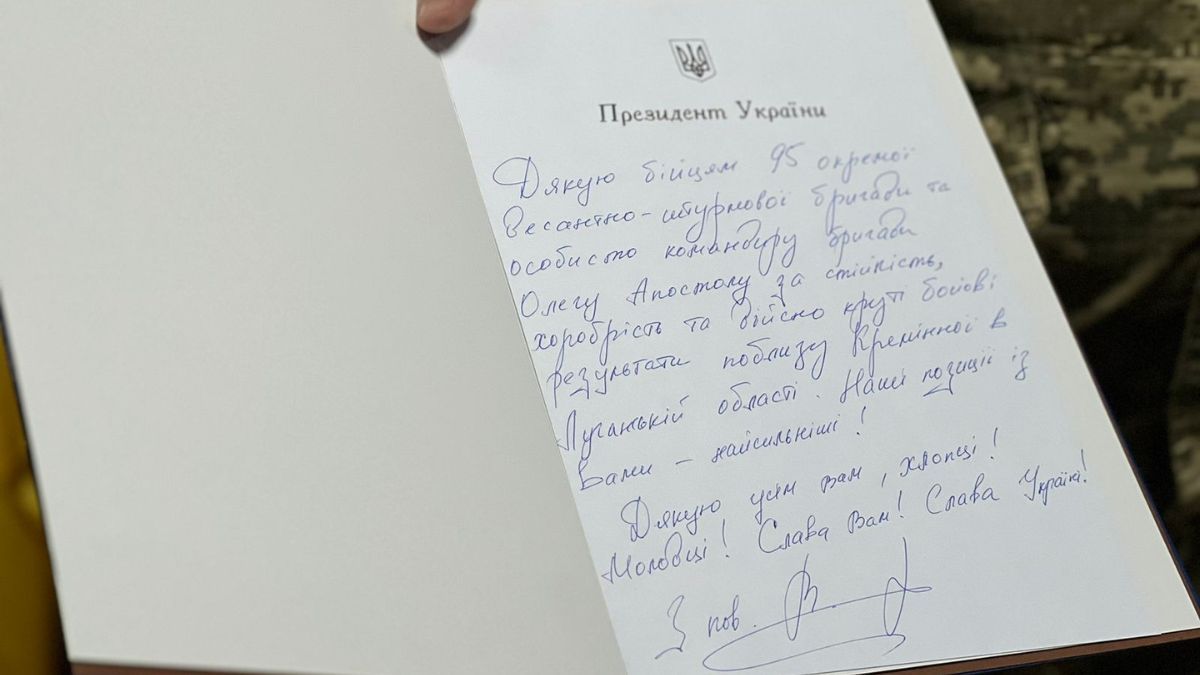 Президент України
Дякую бійцям 95 окремої
десантно-штурмової бригади та
особисто командиру бригади
Олегу Апостолу за стійкість,
хоробрість та дійсно круті бойові
результати поблизу Кремінної в
Луганській області. Наші позиції із
вами – найсильніші!
Дякую усім вам, хлопці!
Молодці! Слава Вам! Слава Україні!
З пов.